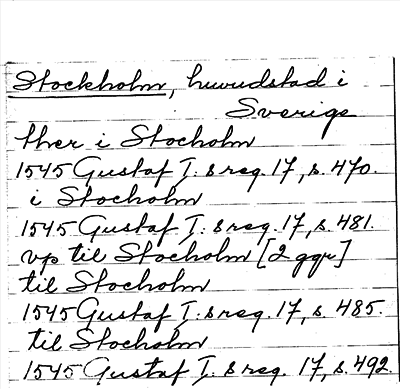 Stockholm, huvudstad i
Sverige
ther i Stocholm
1545 Gustaf I:s reg. 17, s. 470.
i Stocholm
1545 Gustaf I:s reg. 17, s. 481.
vp til Stocholm [2 ggr]
til Stocholm
1545 Gustaf I:s reg. 17, s. 485.
til Stocholm
1545 Gustaf I:s reg. 17, s. 492.